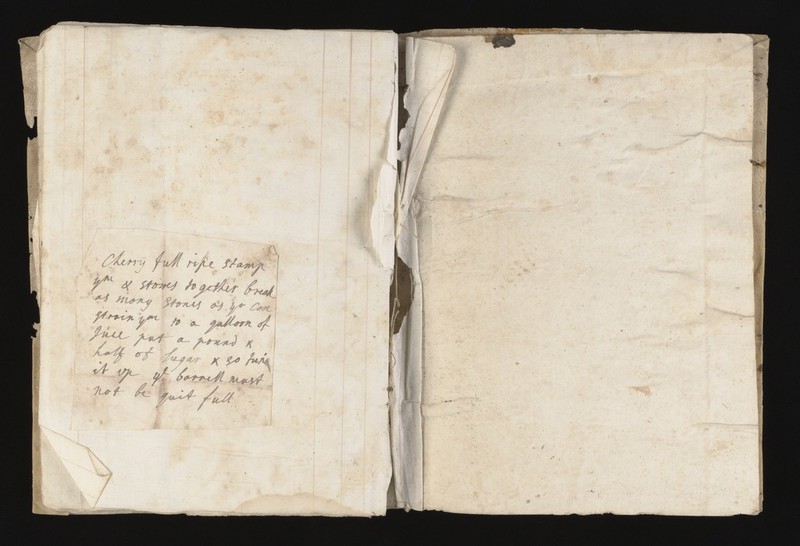 Cherry full ripe stamp
ym & stones together break
as many stones as yo can
strain ym to a galloon of
Juce put a pound &
half of Sugar & so
it up ye barrell must
not be quit full